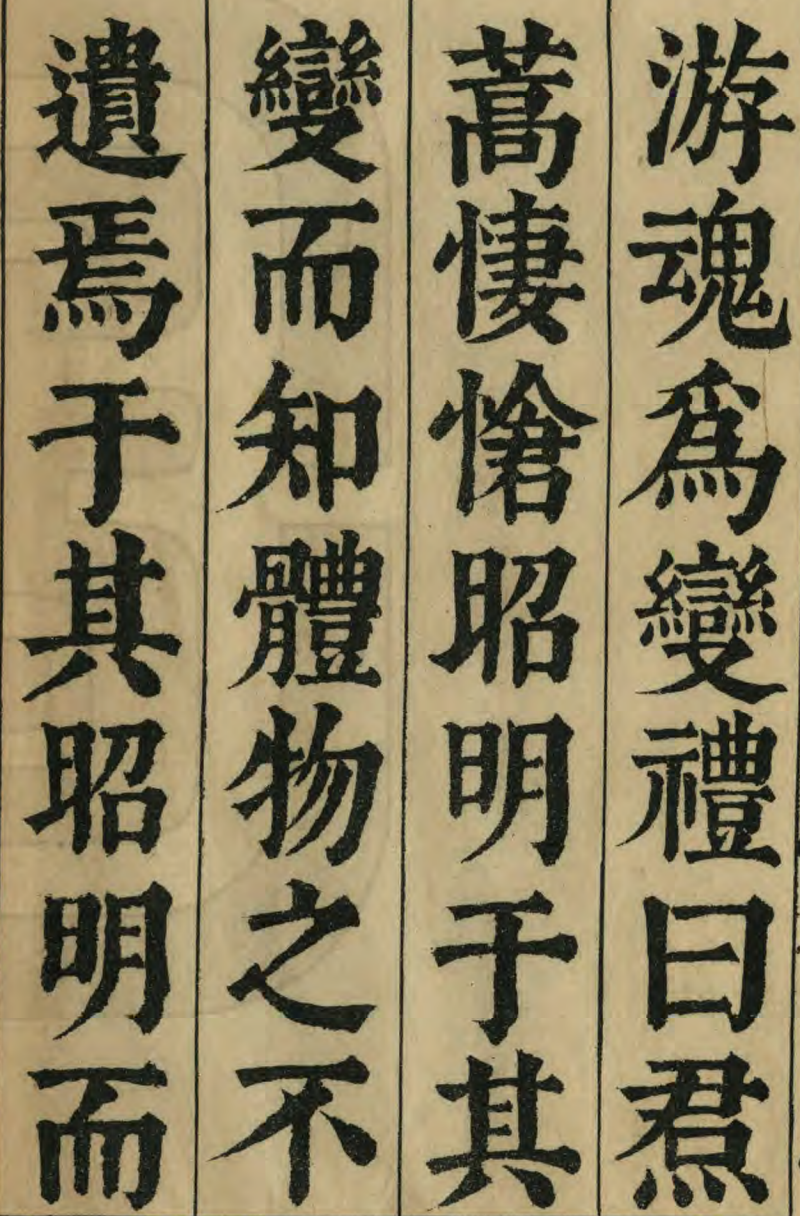 游魂爲變禮曰焄
蒿悽愴昭明于其
變而知體物之不
遺焉于其昭明而